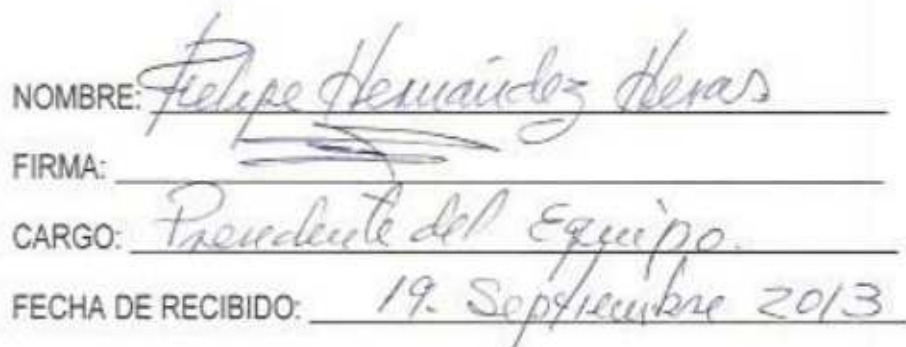 NOMBRE: Felipe Hernández Heras
FIRMA:
CARGO: Presidente del Equipo.
FECHA DE RECIBIDO: 19. Septiembre 2013